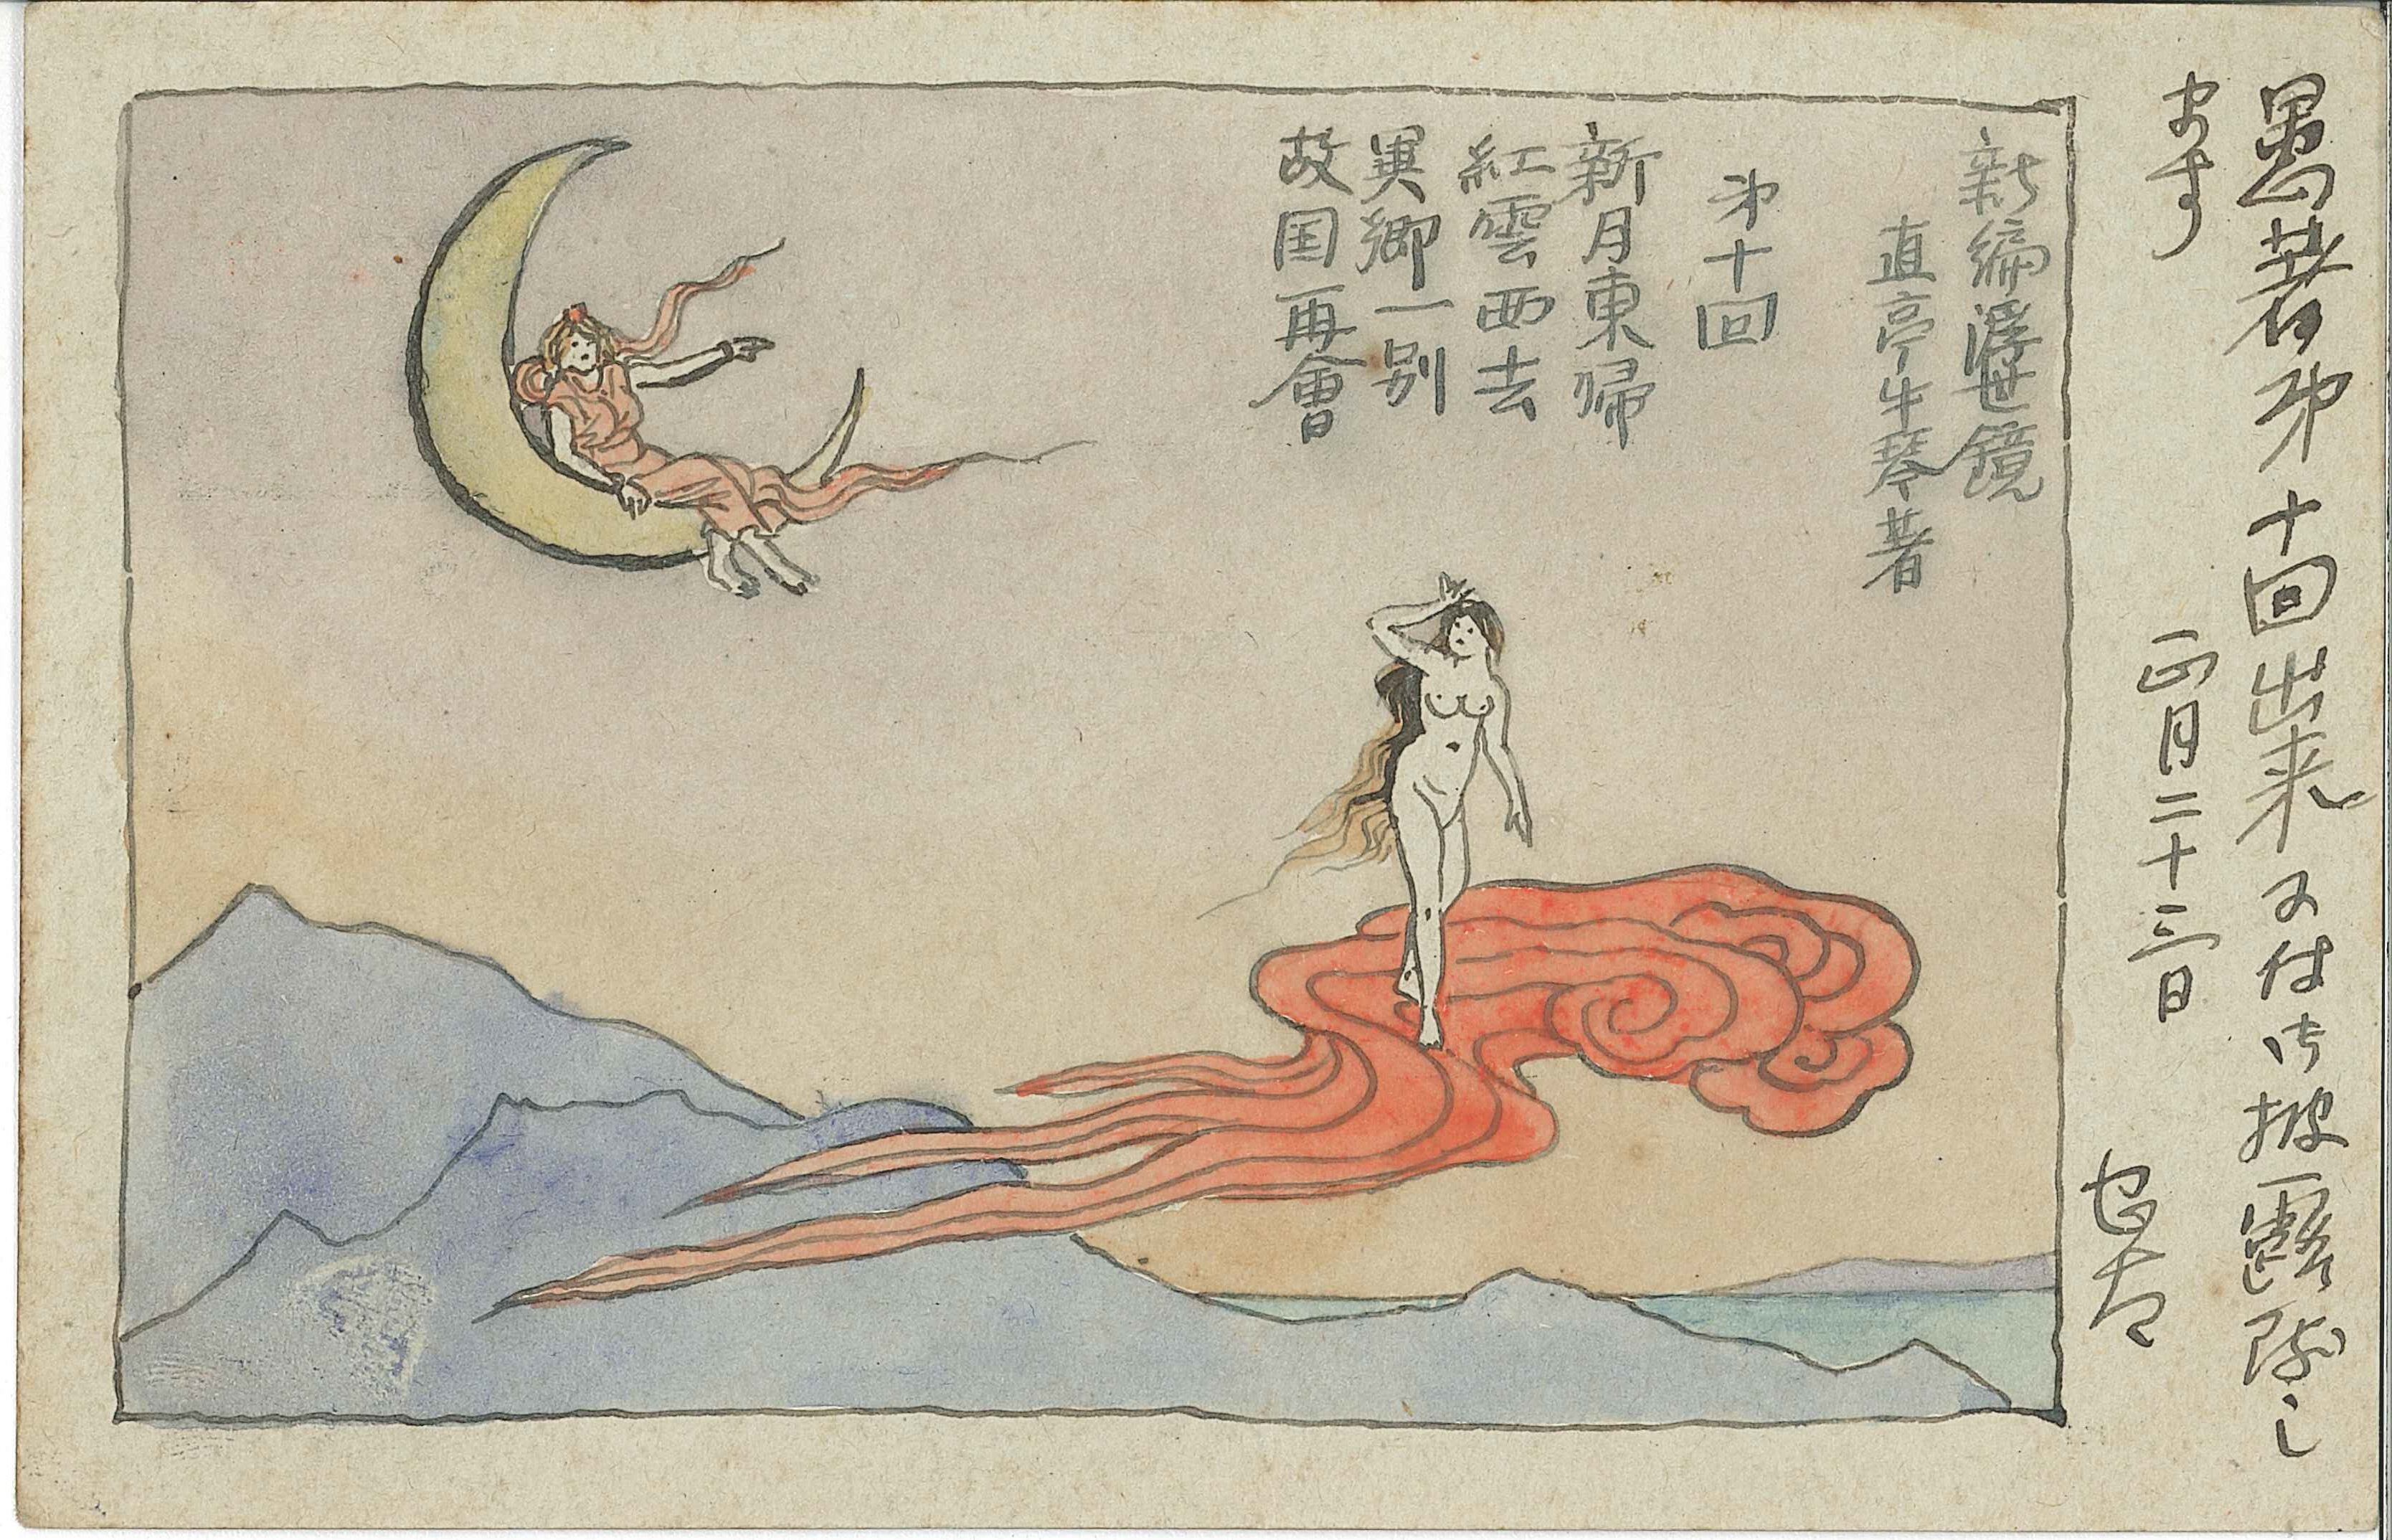 愚著㐧十回出来に付御披露致し
ます
正月二十三日
新編浮世鏡
直亭牛琴著
㐧十回
新月東帰
紅雲西去
異郷一別
故国再會